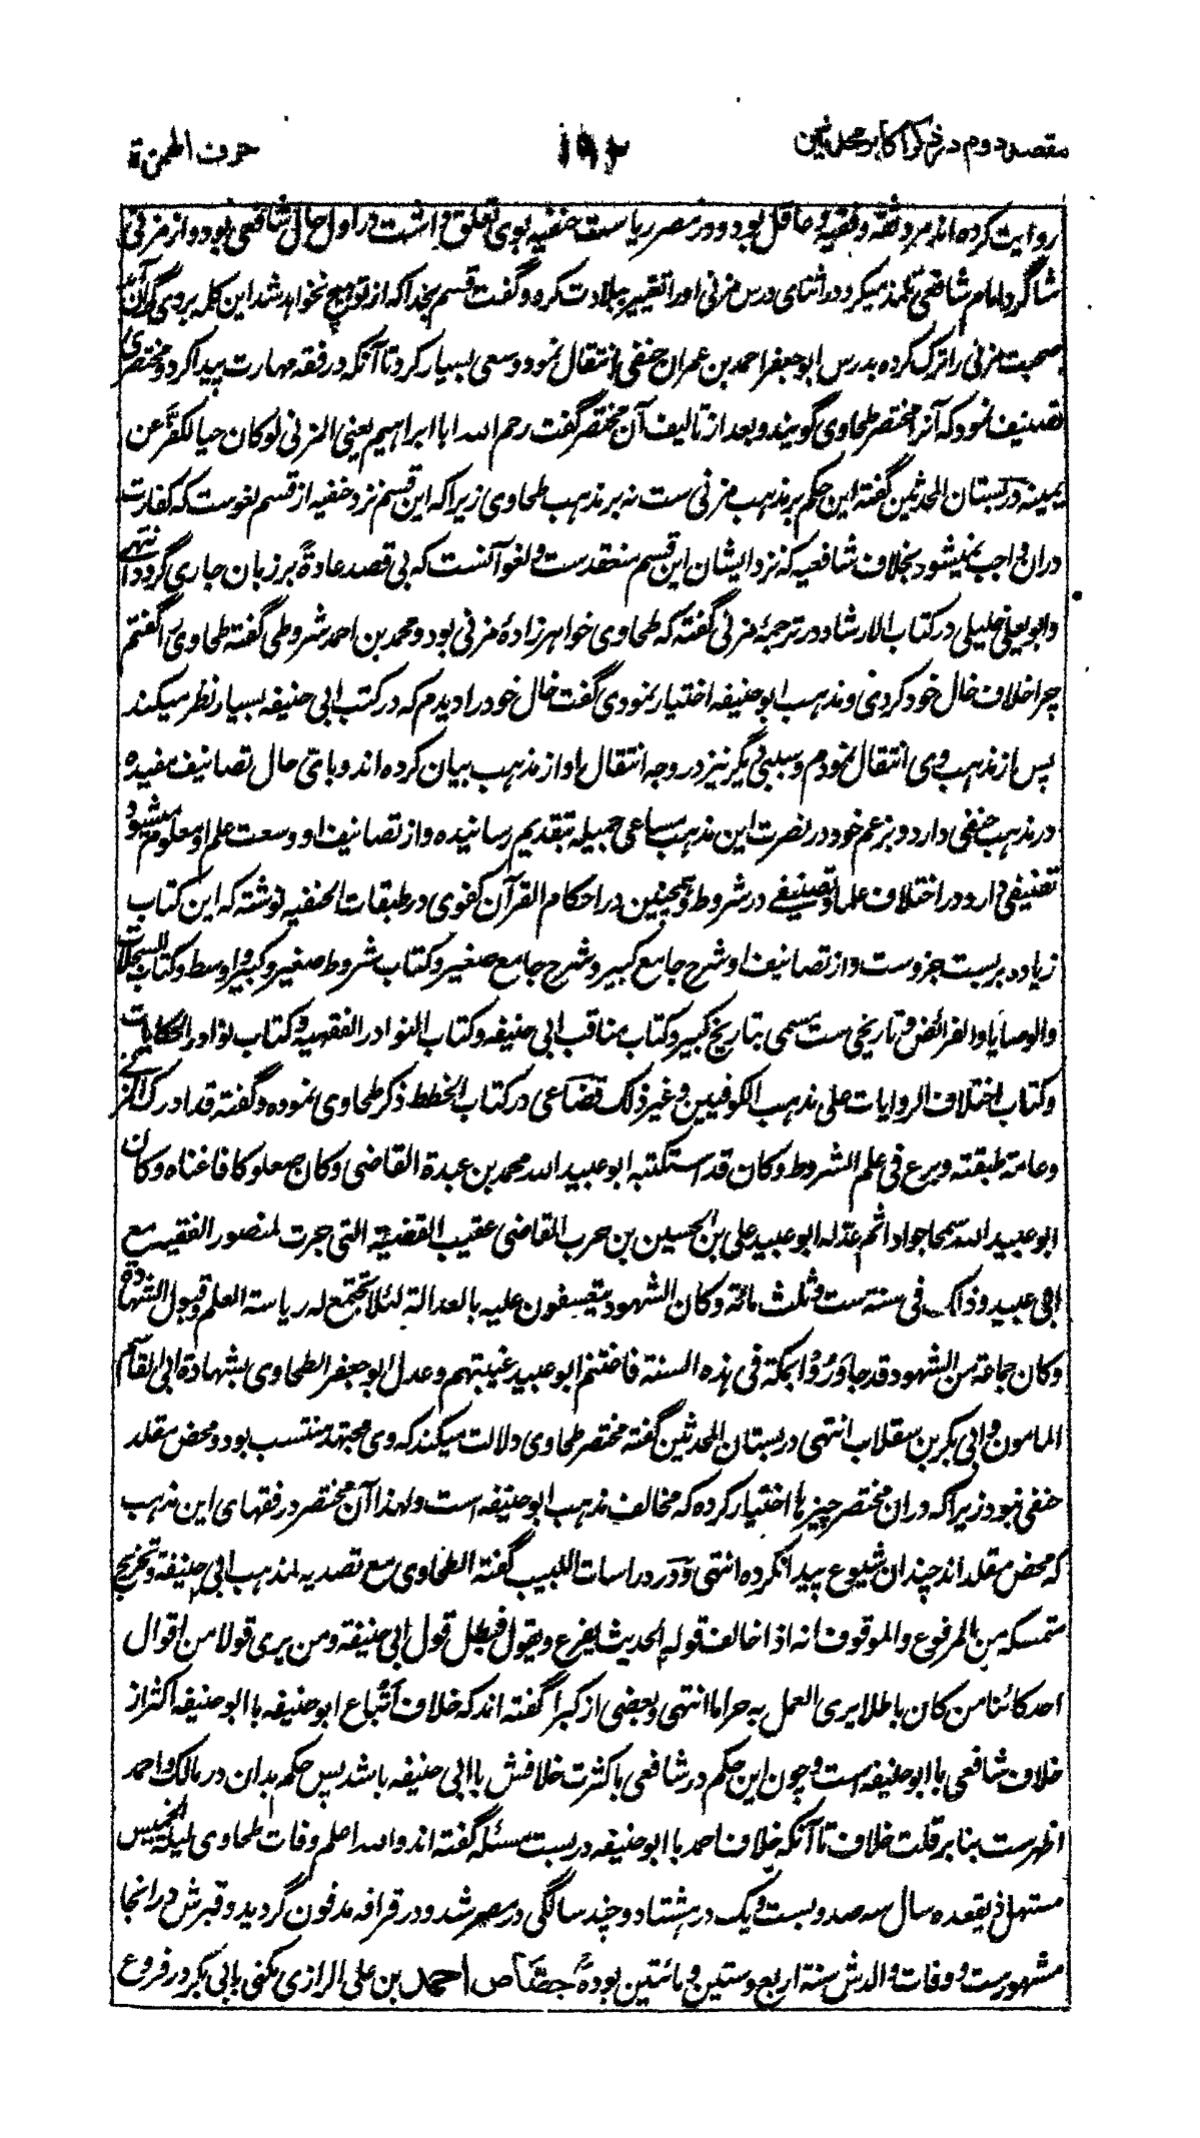 مقصد دوم در ذکر اکابر محدثین
۱۹۲
حرف الهمزة
روایت کرده اند مرد ثقه و فقیه و عاقل بود و در مصر ریاست حنفیه بوی تعلق داشت در اول حال شافعی بود و از مزنی
شاگرد امام شافعی تلمذ میکرد در اثنای درس مزنی او را تغییر ببلادت کرد و گفت قسم بخدا که از تو هیچ نخواهد شد این کلمه بر وی گران آمد
صحبت مزنی را ترک کرده بدرس ابو جعفر احمد بن عمران حنفی انتقال نمود و سعی بسیار کرد تا آنکه در فقه مهارت پیدا کرد و مختصری
تصنیف نمود که آنرا مختصر طحاوی گویند و بعد از تالیف آن مختصر گفت رحم الله ابا ابراهیم یعنی المزنی لو کان حیا لکفّر عن
یمینه در بستان المحدثین گفته این حکم بر مذهب مزنی ست نه بر مذهب طحاوی زیرا که این قسم نزد حنفیه از قسم لغوست که کفارت
دران واجب نمیشود بخلاف شافعیه که نزد ایشان این قسم منعقدست و لغو آنست که بی قصد عادةً بر زبان جاری گردد انتهی
وابو یعلی خلیلی در کتاب الارشاد در ترجمهٔ مزنی گفته که طحاوی خواهرزادهٔ مزنی بود و محمد بن احمد شروطی گفته طحاوی را گفتم
چرا خلاف خال خود کردی و مذهب ابو حنیفه اختیار نمودی گفت خال خود را دیدم که در کتب ابی حنیفه بسیار نظر میکند
پس از مذهب وی انتقال نمودم و سببی دیگر نیز در وجه انتقال او از مذهب بیان کرده اند و باقی حال تصانیف مفیده
در مذهب حنفی دارد و بزعم خود در نصرت این مذهب مساعی جمیله بتقدیم رسانیده و از تصانیف او وسعت علم او معلوم میشود
تصنیفی دارد در اختلاف علما و تصنیفے در شروط و همچنین در احکام القرآن کفوی در طبقات الحنفیه نوشته که این کتاب
زیاده بر بست جزوست و از تصانیف او شرح جامع کبیر و شرح جامع صغیر و کتاب شروط صغیر و کبیر و اوسط و کتاب السجلات
والوصایا والفرائض و تاریخی ست مسمی بتاریخ کبیر و کتاب مناقب ابی حنیفه و کتاب النوادر الفقهیه و کتاب نوادر الحکایات
و کتاب اختلاف الروایات علی مذهب الکوفیین و غیر ذلک قضاعی در کتاب الخطط ذکر طحاوی نموده و گفته قد ادرک المزنے
وعامة طبقته وبرع فی علم الشروط وکان قد استکتبه ابو عبید الله محمد بن عبدة القاضی وکان صعلوکا فاغناه وکان
ابو عبید الله سمحا جوادا ثم عدله ابو عبید علی بن الحسین بن حرب القاضی عقیب القضیة التی جرت لمنصور الفقیه مع
ابی عبید وذلک فی سنة ست وثلث مائة وکان الشهود یتعسفون علیه بالعدالة لئلا تجتمع له ریاسة العلم وقبول الشهادة
وکان جماعة من الشهود قد جاوروا بمکة فی هذه السنة فاغتنم ابو عبید غیبتهم وعدل ابو جعفر الطحاوی بشهادة ابی القاسم
المامون وابی بکر بن سقلاب انتهی در بستان المحدثین گفته مختصر طحاوی دلالت میکند که وی مجتهد منتسب بود و محض مقلد
حنفی نبود زیرا که دران مختصر چیزها اختیار کرده که مخالف مذهب ابو حنیفه است ولهذا آن مختصر در فقهای این مذهب
که محض مقلد اند چندان شیوع پیدا نکرده انتهی و در دراسات اللبیب گفته الطحاوی مع تصدیه لمذهب ابی حنیفة وتخریج
متمسکه من المرفوع والموقوف انه اذا خالف قوله الحدیث یفزع ویقول فبطل قول ابی حنیفة ومن یری قولا من اقوال
احد کائنا من کان باطلا یری العمل به حراما انتهی و بعضی از کبرا گفته اند که خلاف اتباع ابو حنیفه با ابو حنیفه اکثر از
خلاف شافعی با ابو حنیفه است و چون این حکم در شافعی با کثرت خلافش با ابی حنیفه باشد پس حکم بدان در مالک و احمد
اظهرست بنا بر قلت خلاف تا آنکه خلاف احمد با ابو حنیفه در بست مسئله گفته اند والله اعلم وفات طحاوی لیلة الخمیس
مستهل ذیقعده سال سه صد و بست و یک در هشتاد و چند سالگی در مصر شد و در قرافه مدفون گردید و قبرش در انجا
مشهورست و وفات والدش سنة اربع وستین ومائتین بوده جصّاص احمد بن علی الرازی مکنی بابی بکر در فروع